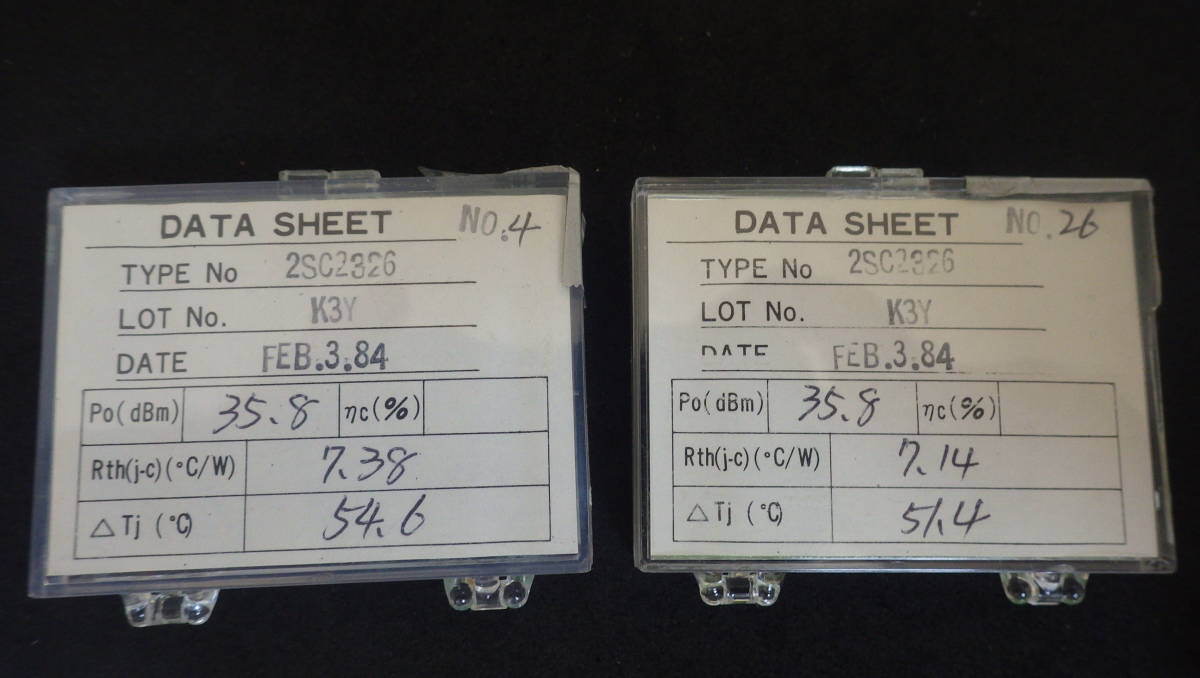 DATA SHEET NO.4
TYPE No 2SC2326
LOT No. K3Y
DATE FEB.3.84
Po(dBm) 35.8 ηc(%)
Rth(j-c)(°C/W) 7.38
△Tj (°C) 54.6
DATA SHEET NO.26
TYPE No 2SC2326
LOT No. K3Y
DATE FEB.3.84
Po(dBm) 35.8 ηc(%)
Rth(j-c)(°C/W) 7.14
△Tj (°C) 51.4